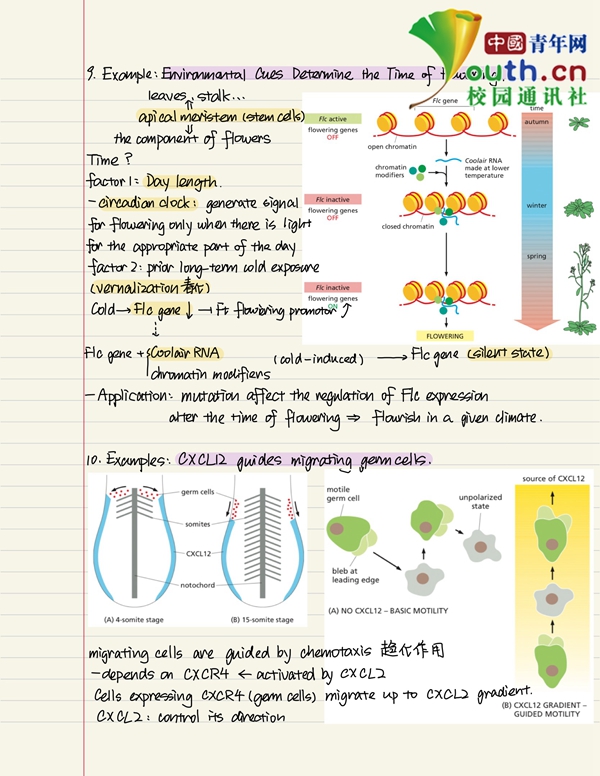 中國青年网
Youth.cn
校园通讯社
9. Example: Environmental Cues Determine the Time of
leaves, stalk...
apical meristem (stem cells)
the component of flowers
Time?
factor 1: Day length.
- circadian clock: generate signal
for flowering only when there is light
for the appropriate part of the day
factor 2: prior long-term cold exposure
(vernalization 春化)
Cold → Flc gene ↓ ⊣ Ft flowering promotor ↑
Flc gene
time
Flc active
flowering genes
OFF
open chromatin
autumn
chromatin
modifiers
Coolair RNA
made at lower
temperature
Flc inactive
flowering genes
OFF
closed chromatin
winter
spring
Flc inactive
flowering genes
ON
FLOWERING
Flc gene + Coolair RNA (cold-induced) → Flc gene (silent state)
chromatin modifiers
- Application: mutation affect the regulation of Flc expression
alter the time of flowering ⇒ flourish in a given climate.
10. Examples: CXCL12 guides migrating germ cells.
germ cells
somites
CXCL12
notochord
(A) 4-somite stage
(B) 15-somite stage
motile
germ cell
unpolarized
state
bleb at
leading edge
(A) NO CXCL12 – BASIC MOTILITY
source of CXCL12
(B) CXCL12 GRADIENT –
GUIDED MOTILITY
migrating cells are guided by chemotaxis 趋化作用
- depends on CXCR4 ← activated by CXCL2
Cells expressing CXCR4 (germ cells) migrate up to CXCL2 gradient.
CXCL2: control its direction